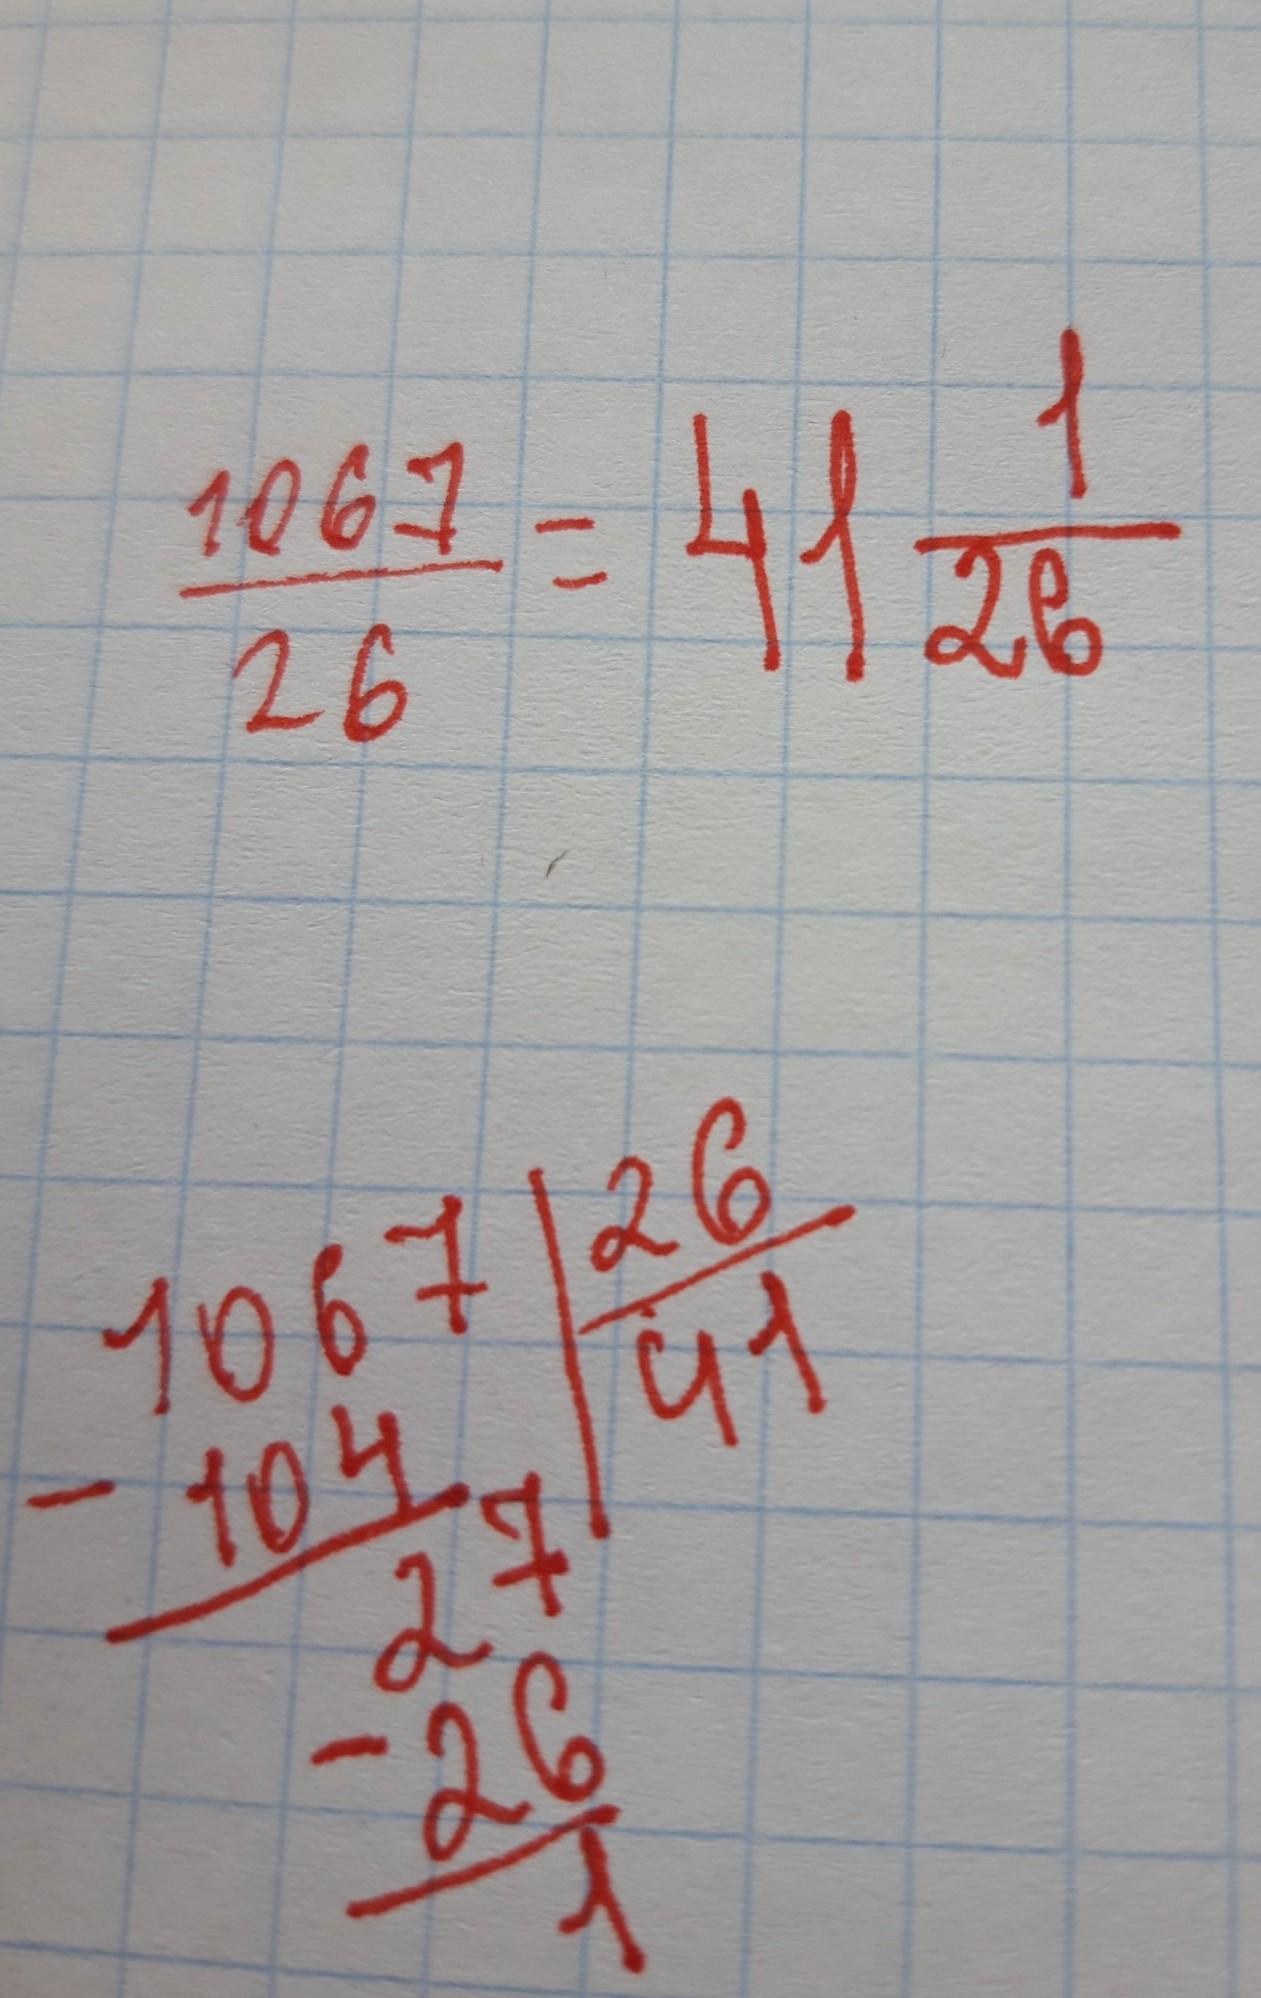 1067/26 = 41 1/26
1067 | 26
- 104 | 41
27
- 26
1